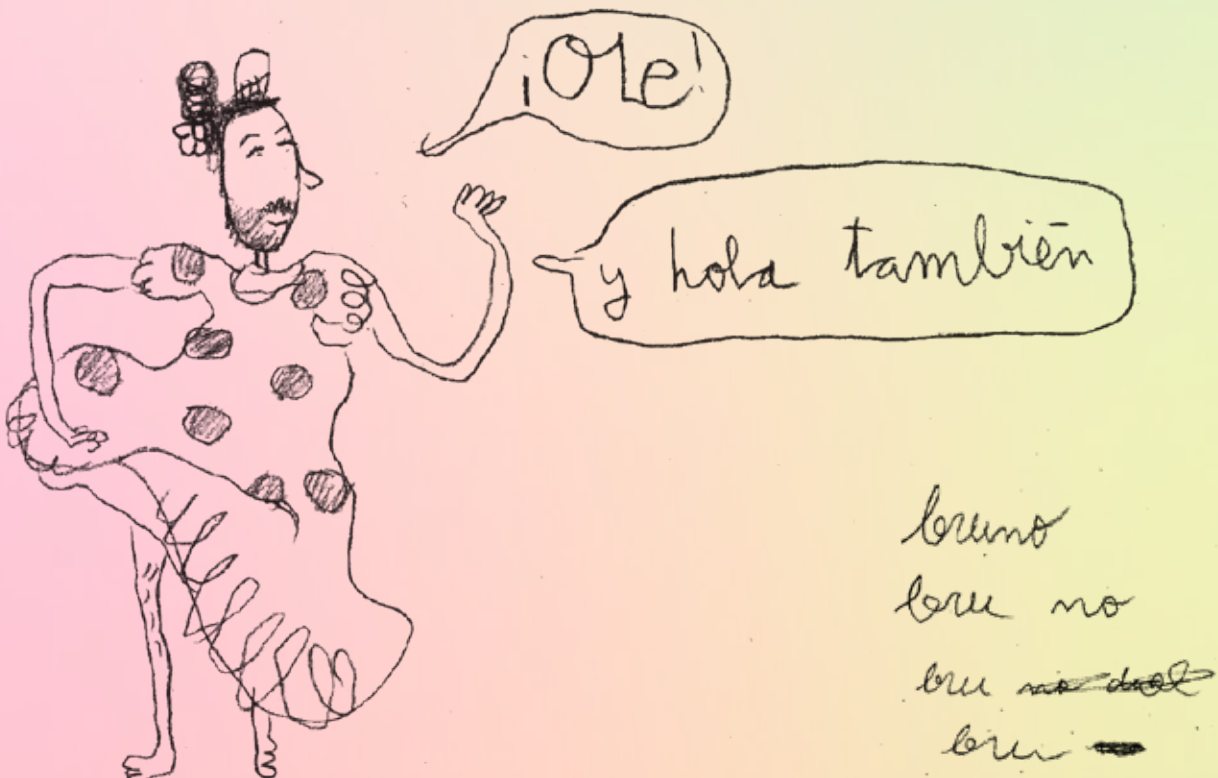 ¡Ole!
y hola también
bruno
bru no
bru
bru